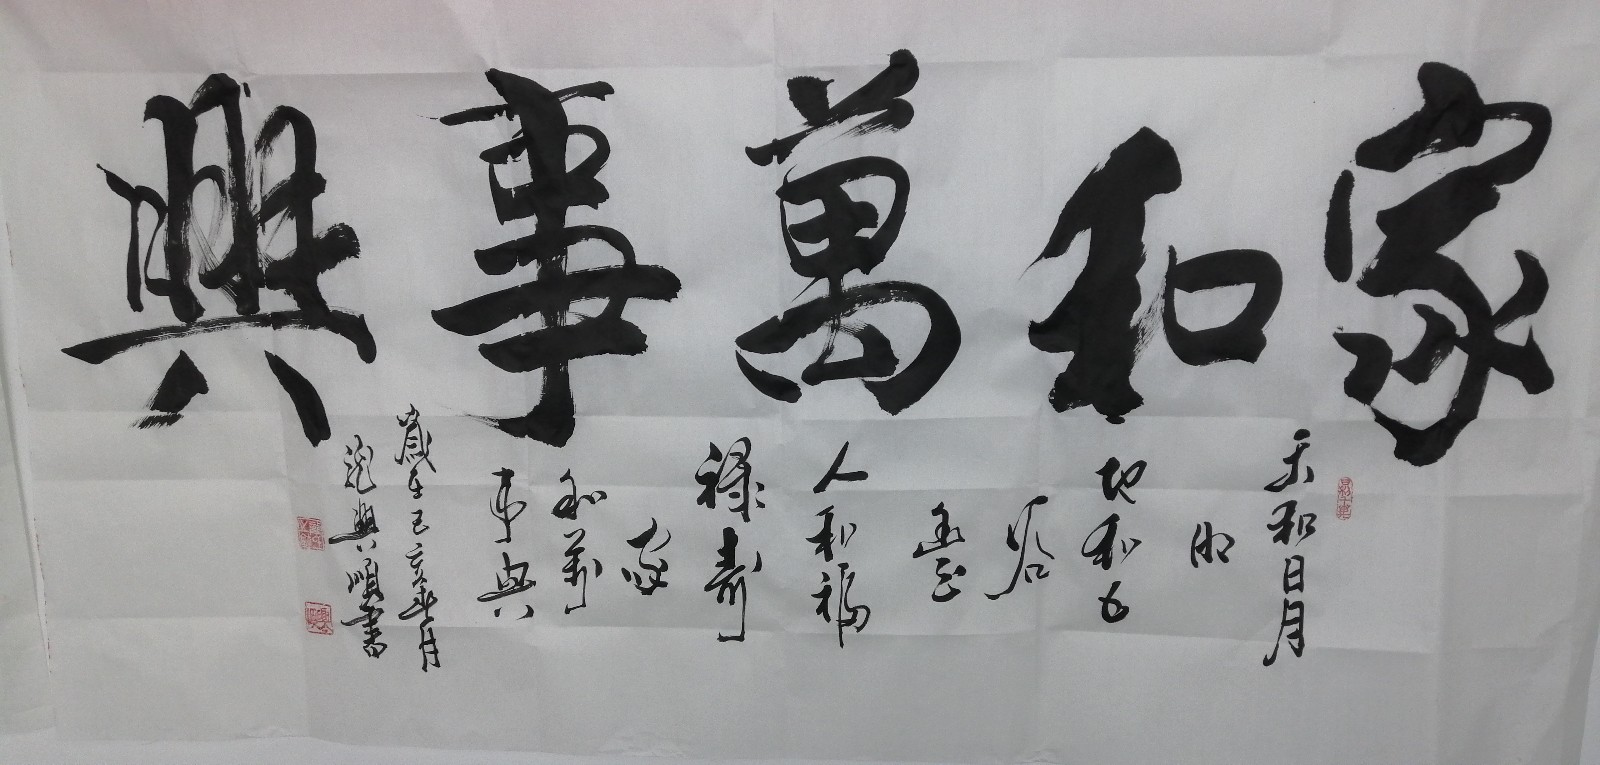 家和萬事興
天和日月
明
地和五
谷
豊
人和福
禄壽
家
和萬
事興
歲在己亥年
月
興順書